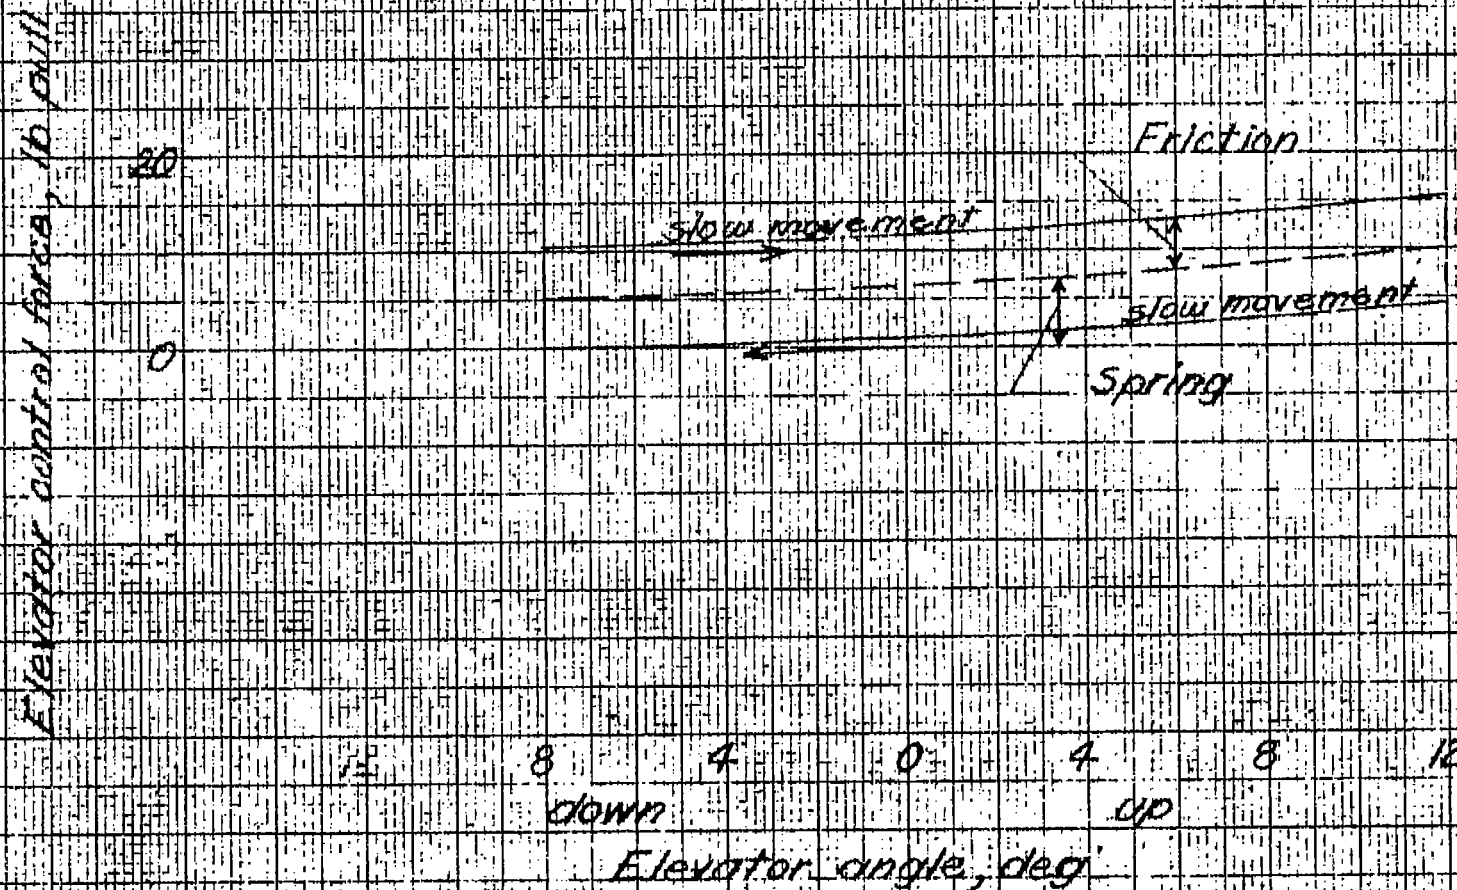 Elevator control force, lb pull
20
Friction
slow movement
slow movement
0
Spring
8 4 0 4 8 12
down up
Elevator angle, deg